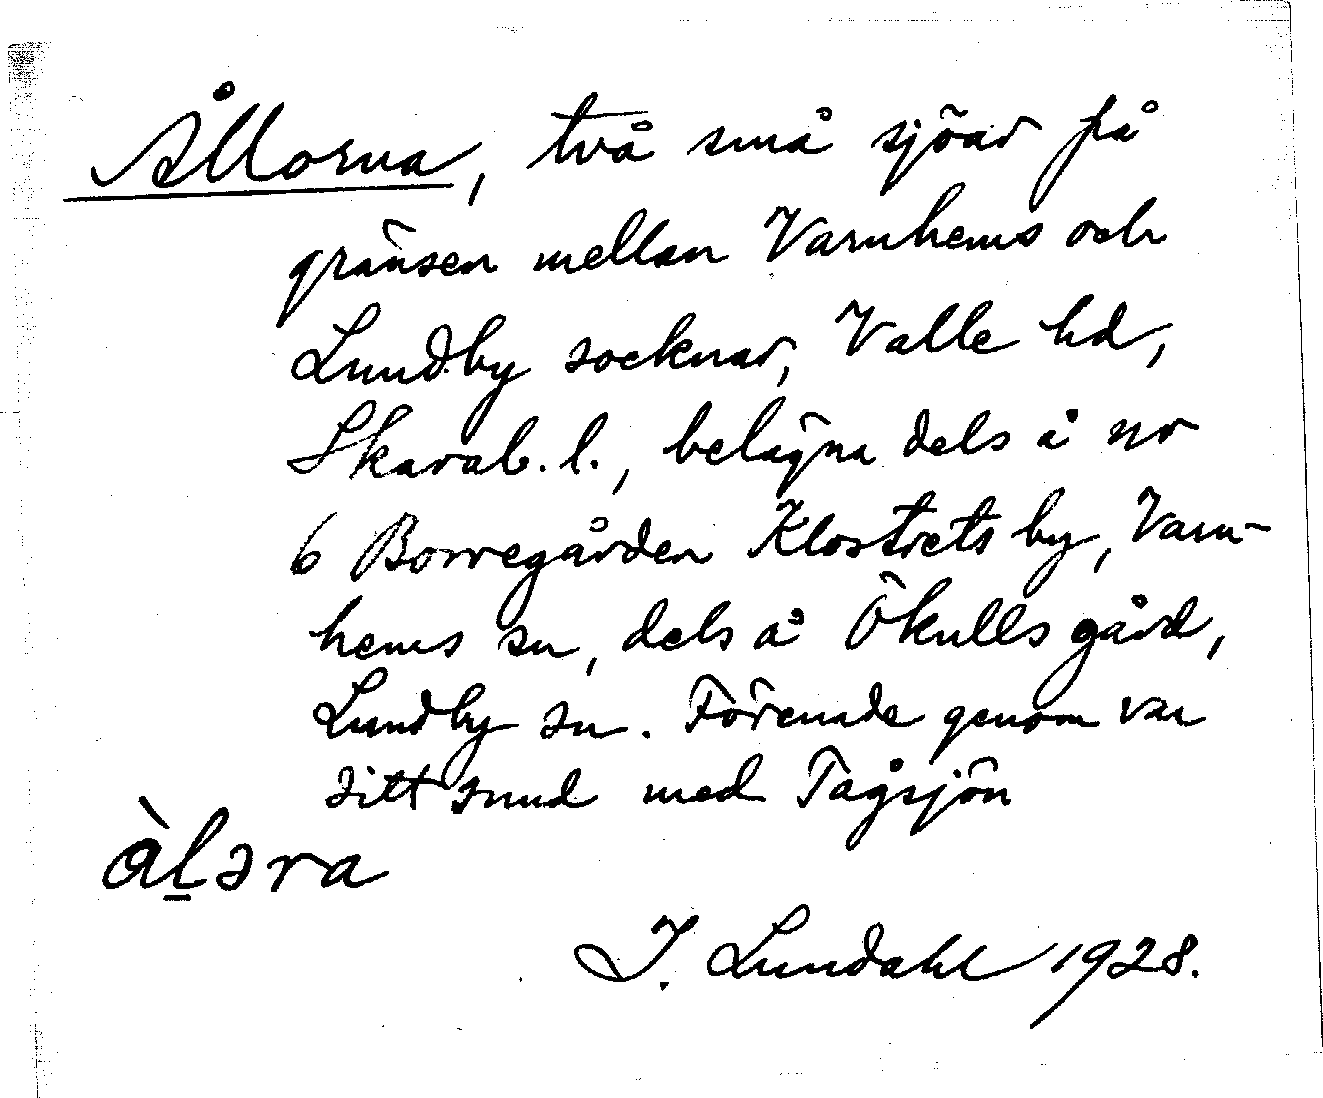 Ållorna, två små sjöar på
gränsen mellan Varnhems och
Lundby socknar, Valle hd,
Skarab. l., belägna dels å nr
6 Borregården Klostrets by, Varn-
hems sn, dels å Ökulls gård,
Lundby sn. Förenade genom var
sitt sund med Tagsjön
àḻəra
I. Lundahl 1928.